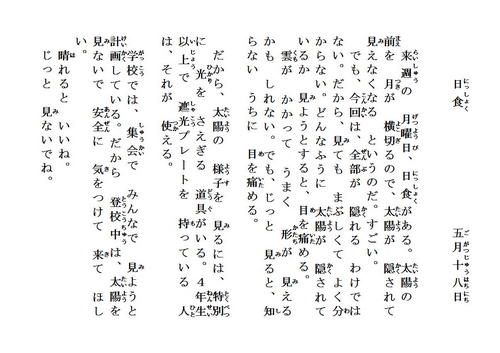 日食　五月十八日
　来週の　月曜日、日食がある。太陽の
前を　月が　横切るので、太陽が　隠されて
見えなくなる　というのだ。すごい。
　でも、今回は、全部が　隠れる　わけでは
ない。だから、見ても　まぶしくて　よく分
からない。どんなふうに　太陽が　隠されて
いるか　見ようとすると、目を痛める。
　雲が　かかって　うまく　形が　見える
かも　しれない。でも、じっと　見ると、知
らない　うちに　目を痛める。
　だから、太陽の　様子を　見るには、特別
に　光を　さえぎる　道具がいる。４年生
以上で　遮光プレートを　持っている　人
は、それが　使える。
　学校では、集会で　みんなで　見ようと
計画している。だから　登校中は、太陽を
見ないで　安全に　気をつけて　来て　ほし
い。
　晴れると　いいね。
　じっと　見ないでね。